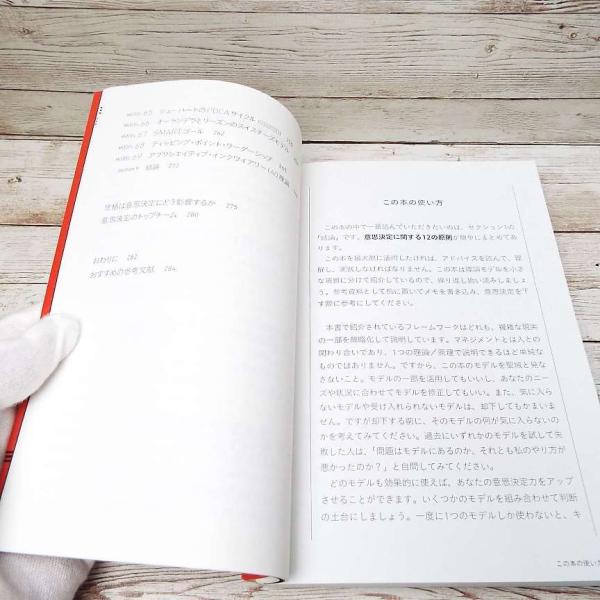 with.65 シューハートのPDCAサイクル
with.66 オーランデラとリーズンのスイスチーズモデル
with.67 SMARTゴール 262
with.68 ティッピング・ポイント・リーダーシップ
with.69 アプリシエイティブ・インクワイアリー(AI)理論
結論 272
性格は意思決定にどう影響するか 275
意思決定のトップチーム 280
おわりに 282
おすすめの参考文献 284
この本の使い方
この本の中で一番読んでいただきたいのは、セクション1の
「結論」です。意思決定に関する12の原則が簡単にまとめてあ
ります。
この本を最大限に活用したければ、アドバイスを読んで、理
解し、実践しなければなりません。この本は理論モデルを小さ
な項目に分けて紹介しているので、繰り返し拾い読みしましょ
う。参考資料として机に置いてメモを書き込み、意思決定を下
す際に参考にしてください。
本書で紹介されているフレームワークはどれも、複雑な現実
の一部を簡略化して説明しています。マネジメントとは人との
関わり合いであり、1つの理論／原理で説明できるほど単純な
ものではありません。ですから、この本のモデルを聖域と見な
さないこと。モデルの一部を活用してもいいし、あなたのニー
ズや状況に合わせてモデルを修正してもいい。また、気に入ら
ないモデルや受け入れられないモデルは、却下してもかまいま
せん。ですが却下する前に、そのモデルの何が気に入らないの
かを考えてみてください。過去にいずれかのモデルを試して失
敗した人は、「問題はモデルにあるのか、それとも私のやり方が
悪かったのか？」と自問してみてください。
どのモデルも効果的に使えば、あなたの意思決定力をアップ
させることができます。いくつかのモデルを組み合わせて判断
の土台にしましょう。一度に1つのモデルしか使わないと、キ
この本の使い方